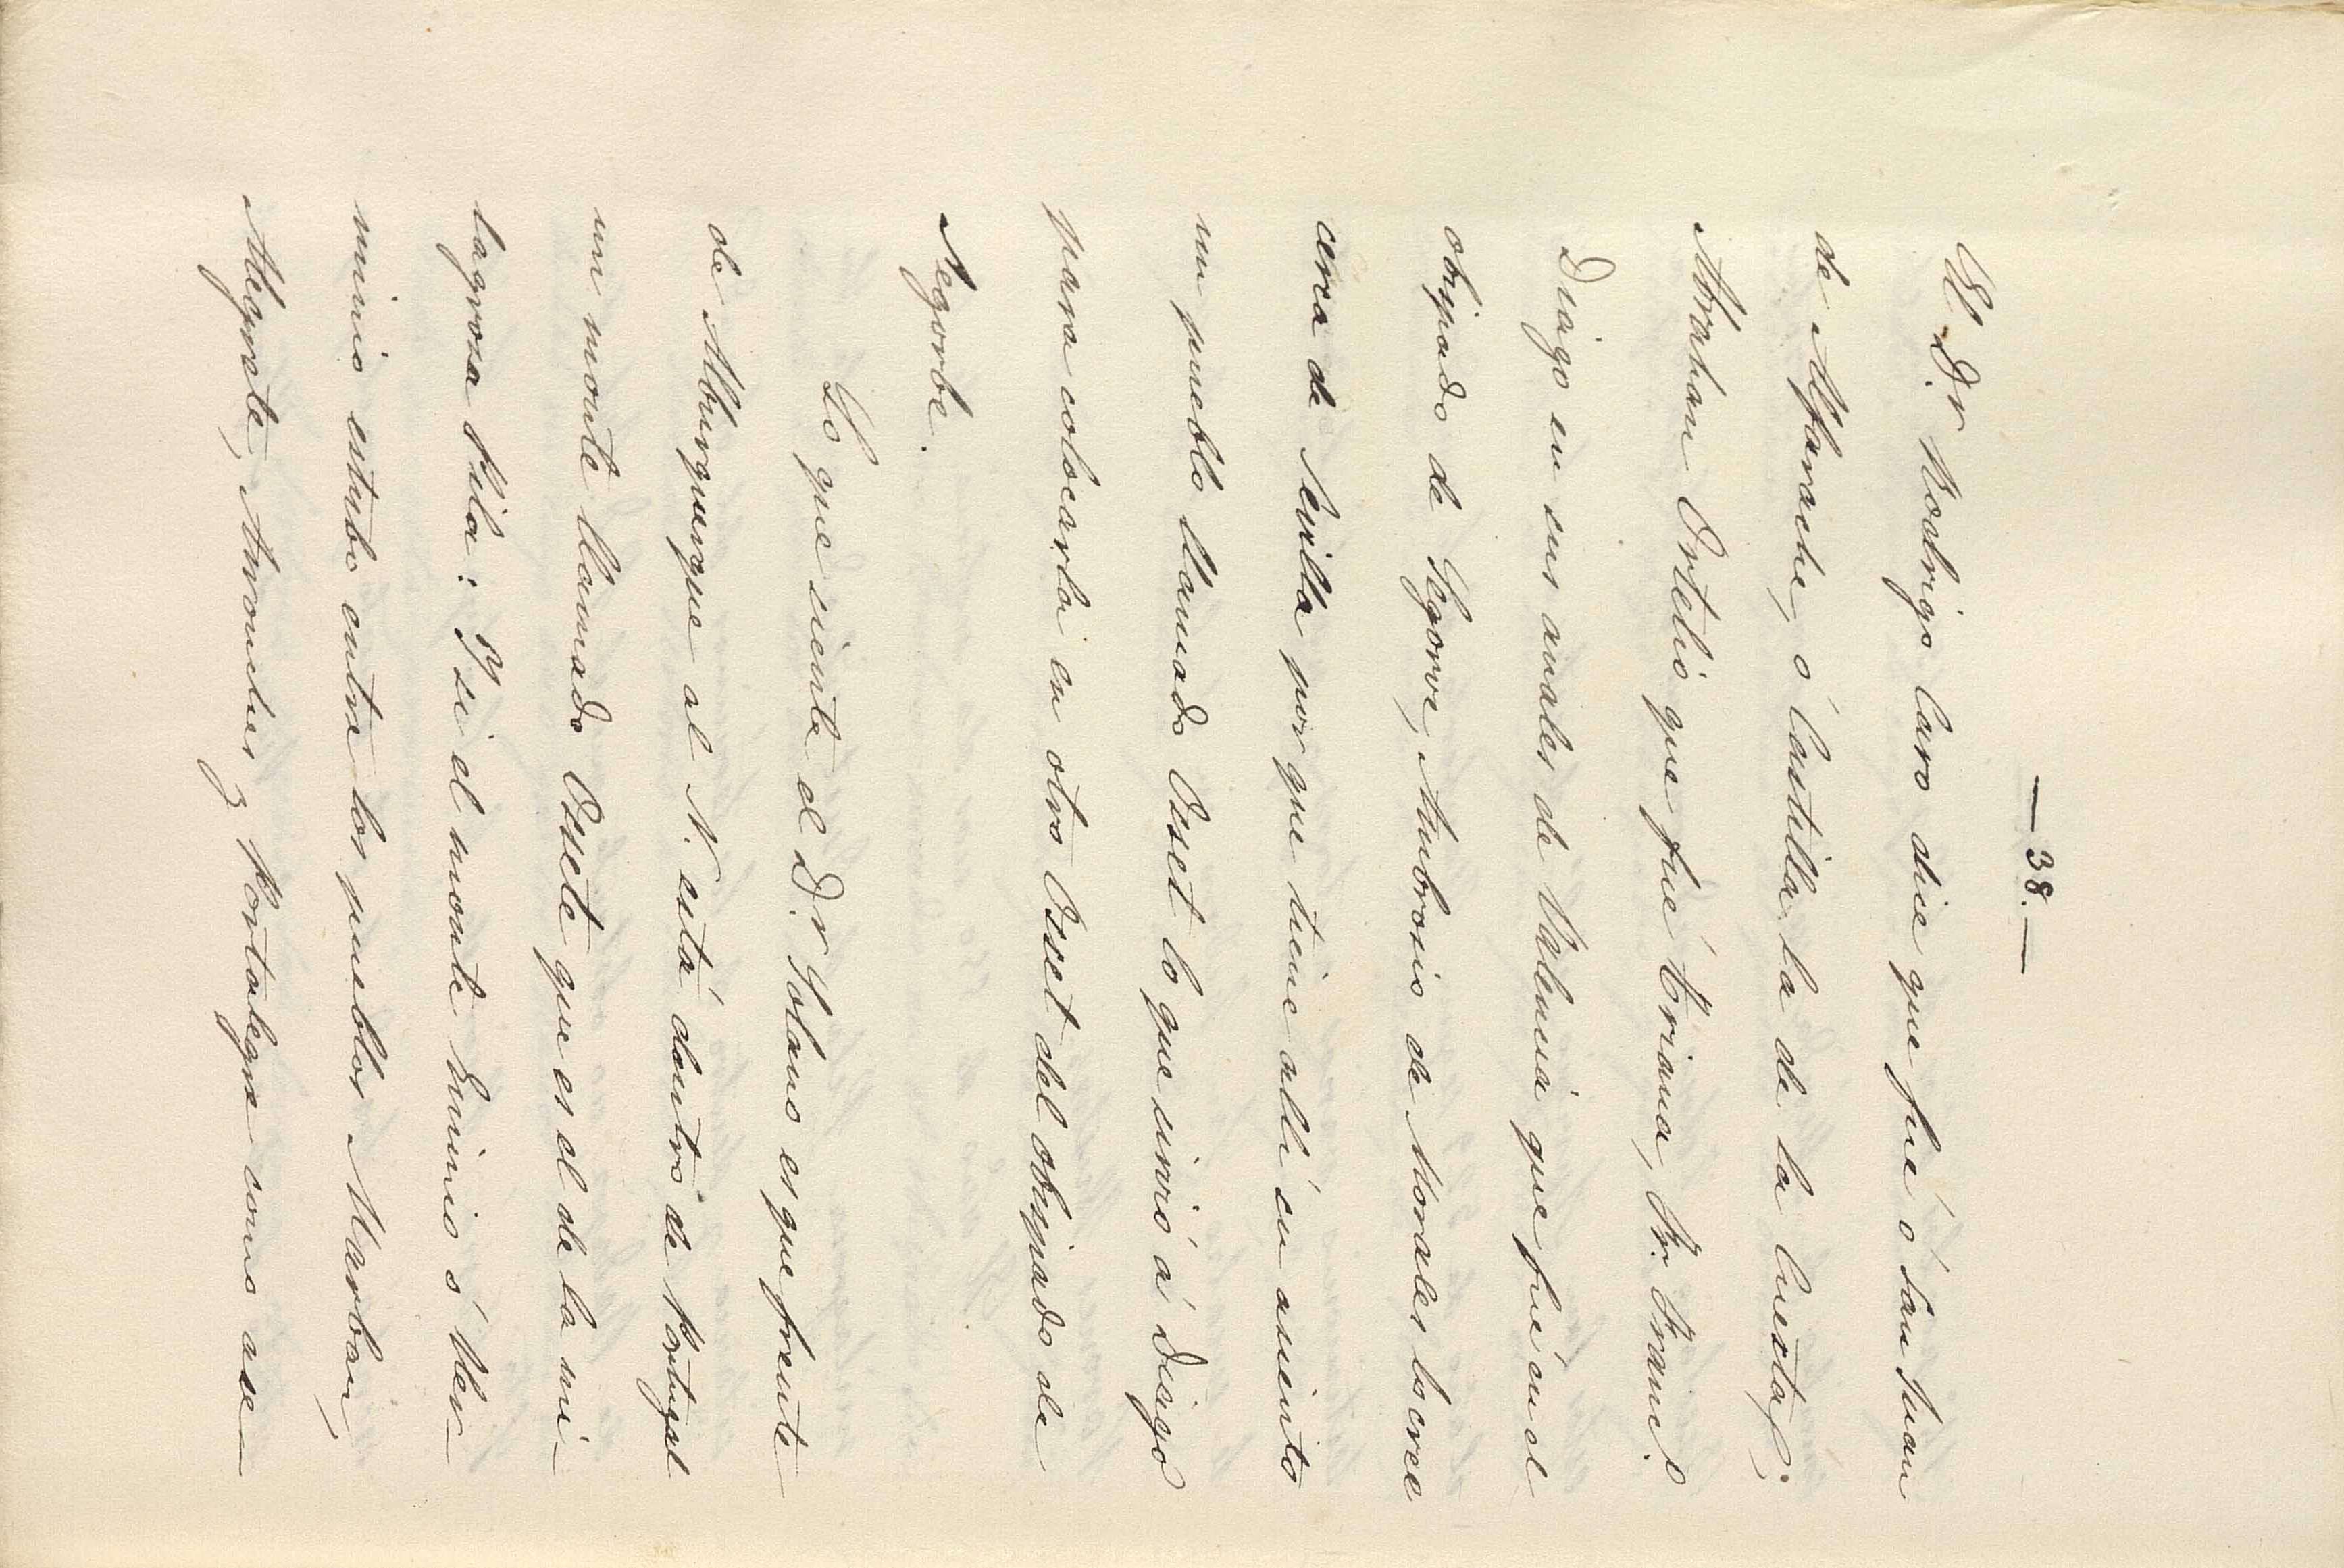 — 38. —
El D.r Rodrigo Caro dice que fué ó San Juan
de Alfarache, ó Castilla la de la Cuesta;
Abraham Ortelio que fué Triana, Fr. Franc.o
Diago en sus anales de Valencia que fué en el
obispado de Segorve, Ambrosio de Morales lo cree
cerca de Sevilla por que tiene allí su asiento
un pueblo llamado Osset lo que sirvió á Diago
para colocarla en otro Osset del obispado de
Segorbe.
Lo que siente el D.r Solano es que frente
de Alburquerque al N. está dentro de Portugal
un monte llamado Ossete que es el de la mi-
lagrosa Pila: Y si el monte Eminio ó Her-
minio estubo entre los pueblos Marban,
Alegrete, Arronches y Portalegre como ase-